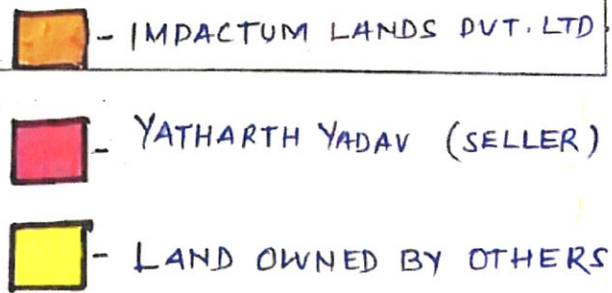 - IMPACTUM LANDS PVT. LTD
- YATHARTH YADAV (SELLER)
- LAND OWNED BY OTHERS